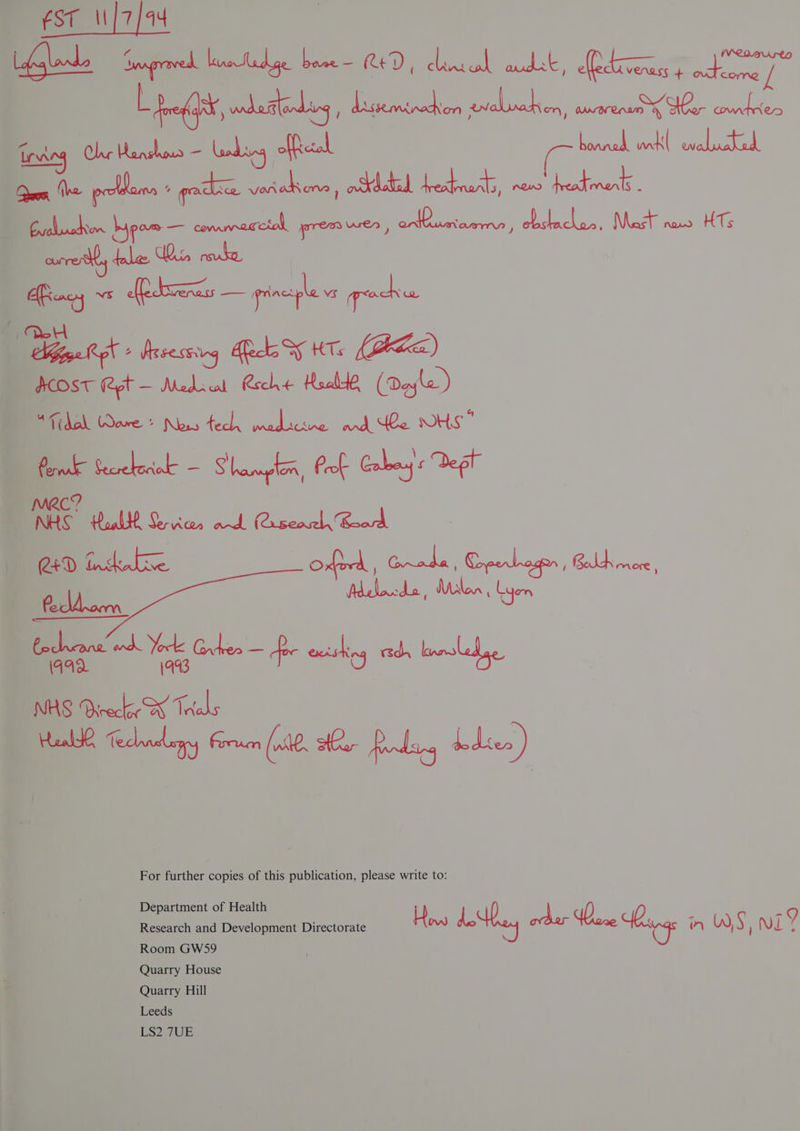 FST 11/7/94
Langlands improved knowledge base – R+D, clinical audit, effectiveness + outcome measures /
foresight, understanding, dissemination evaluation, awareness of other countries
Irving Chr Henshaw – leading official
banned until evaluated
The problems : practice variations, outdated treatments, new treatments.
Evaluation bypass — commercial pressures, enthusiasms, obstacles. Most new HTs
currently take this route
Efficacy vs effectiveness — principle vs practice
DoH
Rpt : Assessing Effects of HTs
ACOST Rpt – Medical Rsch + Health (Doyle)
"Tidal Wave : New tech medicine and the NHS"
Permt Secretariat – S'hampton, Prof Gabay's Dept
MRC?
NHS Health Services and Research Board
R+D Initiative Oxford, Canada, Copenhagen, Baltimore,
Adelaide, Milan, Lyon
Peckham
Cochrane and York Centres — for existing rsch knowledge
1992 1993
NHS Director of Trials
Health Technology Forum (with other funding bodies)
For further copies of this publication, please write to:
Department of Health
Research and Development Directorate
How do they order these things in W, S, NI?
Room GW59
Quarry House
Quarry Hill
Leeds
LS2 7UE